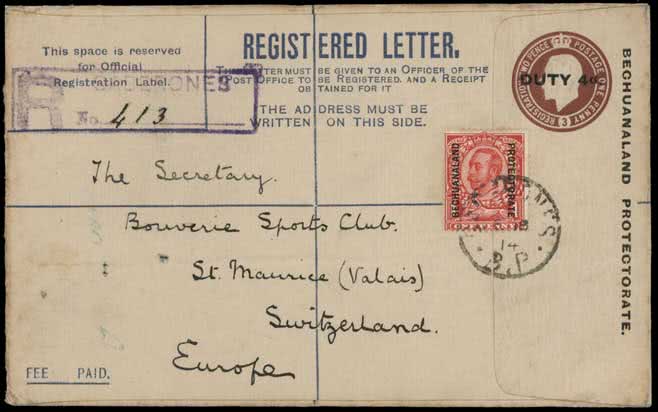 This space is reserved
for Official
Registration Label.
R
No. 413
REGISTERED LETTER.
THE LETTER MUST BE GIVEN TO AN OFFICER OF THE
POST OFFICE TO BE REGISTERED, AND A RECEIPT
OBTAINED FOR IT
THE ADDRESS MUST BE
WRITTEN ON THIS SIDE.
REGISTRATION TWO PENCE POSTAGE ONE PENNY
3
DUTY 4d
BECHUANALAND PROTECTORATE.
BECHUANALAND
PROTECTORATE
14
B.P
The Secretary.
Bouverie Sports Club.
St. Maurice (Valais)
Switzerland.
Europe
FEE PAID.